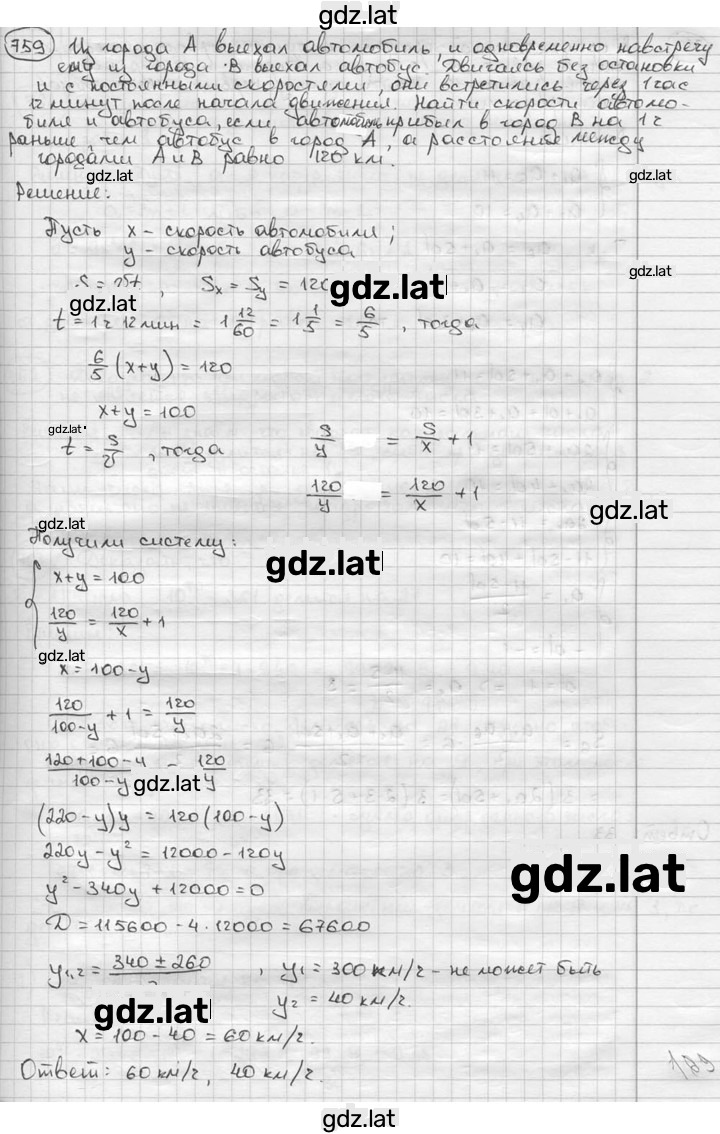 gdz.lat
759 Из города А выехал автомобиль, и одновременно навстречу
ему из города В выехал автобус. Двигаясь без остановки
и с постоянными скоростями, они встретились через 1 час
12 минут после начала движения. Найти скорости автомо-
биля и автобуса, если автомобиль прибыл в город В на 1 г
раньше, чем автобус в город А, а расстояние между
городами А и В равно 120 км.
gdz.lat
gdz.lat
Решение:
Пусть x - скорость автомобиля;
y - скорость автобуса
gdz.lat
S = vt, Sx = Sy = 120
gdz.lat
gdz.lat
t = 1 г 12 мин = 1 12/60 = 1 1/5 = 6/5, тогда
6/5 (x+y) = 120
x+y = 100
gdz.lat
t = S/v, тогда S/y = S/x + 1
120/y = 120/x + 1
gdz.lat
gdz.lat
Получили систему:
gdz.lat
{ x+y = 100
120/y = 120/x + 1
gdz.lat
x = 100-y
120/(100-y) + 1 = 120/y
(120+100-y)/(100-y) = 120/y
gdz.lat
(220-y)y = 120(100-y)
220y - y² = 12000 - 120y
gdz.lat
y² - 340y + 12000 = 0
D = 115600 - 4·12000 = 67600
y1,2 = 340 ± 260, y1 = 300 км/г - не может быть
y2 = 40 км/г.
gdz.lat
x = 100 - 40 = 60 км/г.
Ответ: 60 км/г, 40 км/г.
gdz.lat